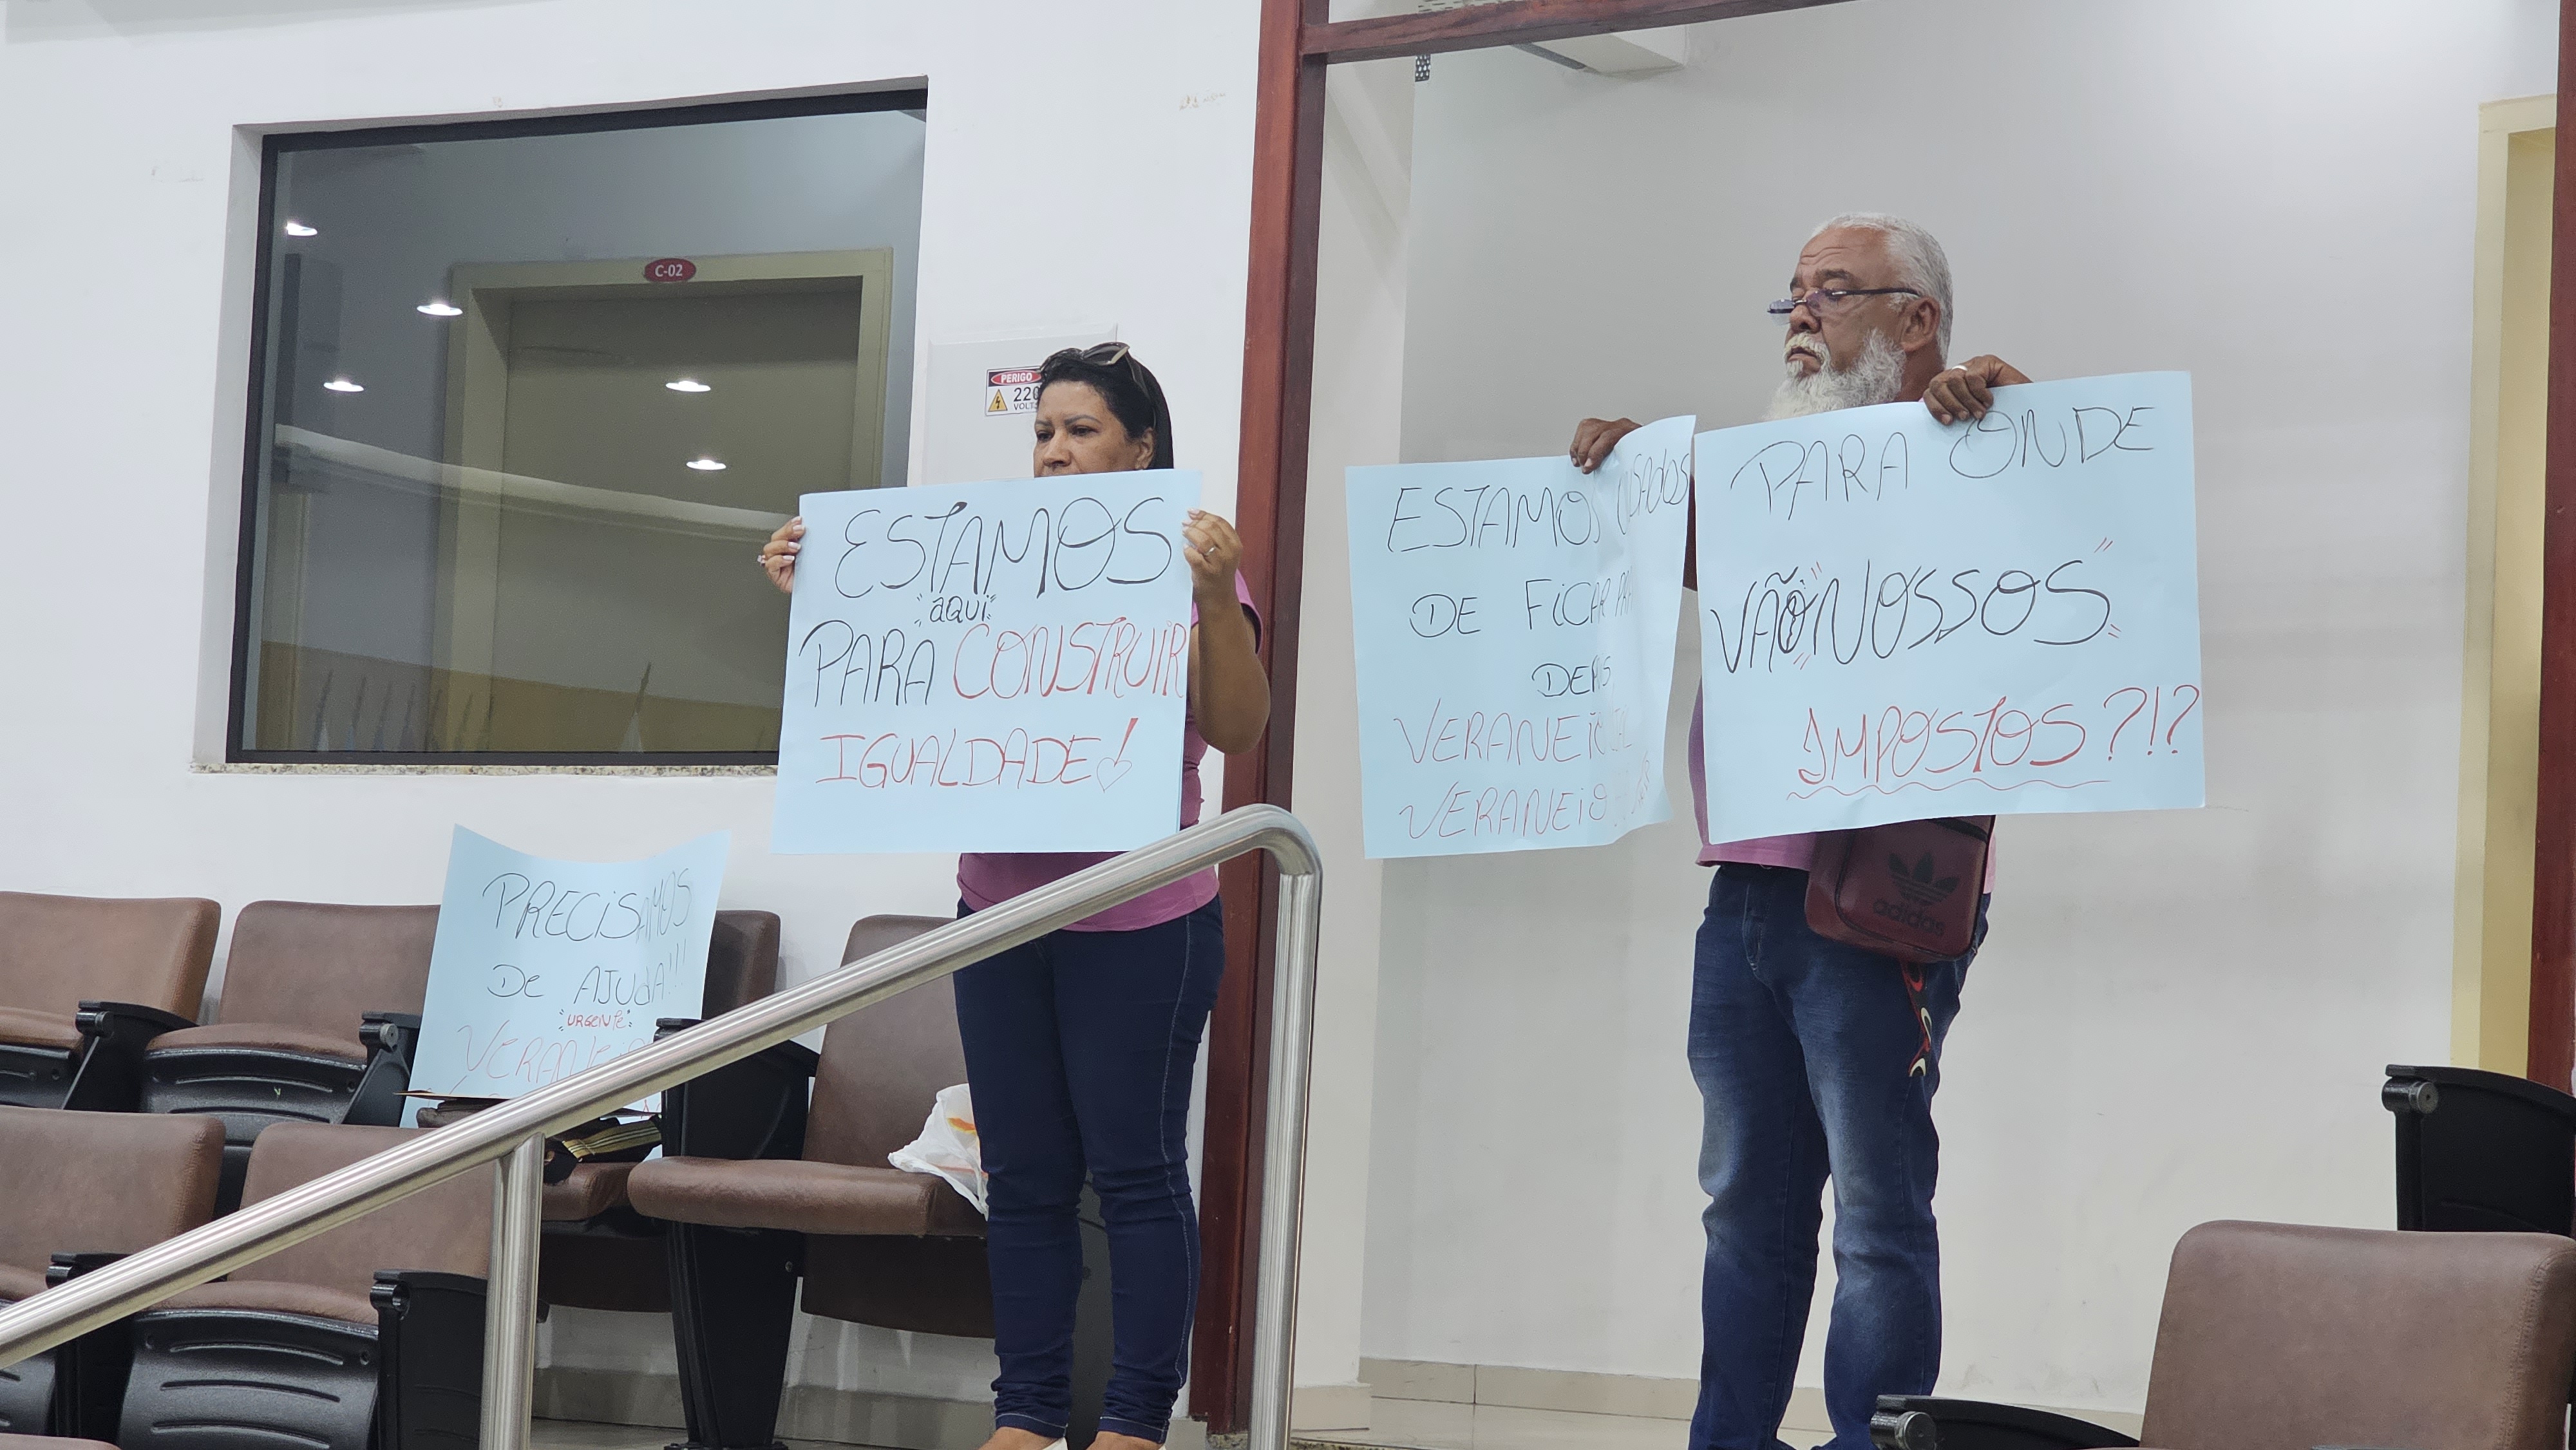 C-02
PERIGO
220
VOLTS
ESTAMOS
"aqui"
PARA CONSTRUIR
IGUALDADE!
ESTAMOS
DE FiCAR
VERANEIO
PARA ONDE
VÃO "NOSSOS"
IMPOSTOS?!?
PRECISAMOS
De AJUdA!!!
"URGENTE"
adidas